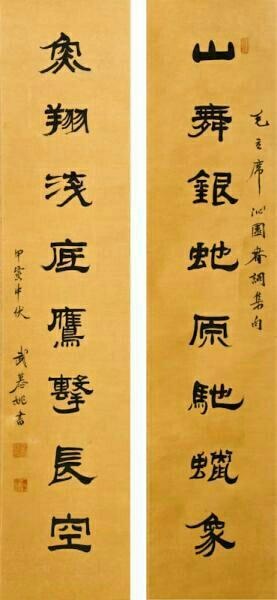 毛主席沁園春詞集句
山舞銀蛇原馳蠟象
魚翔淺底鷹擊長空
甲寅中伏
武慕姚書